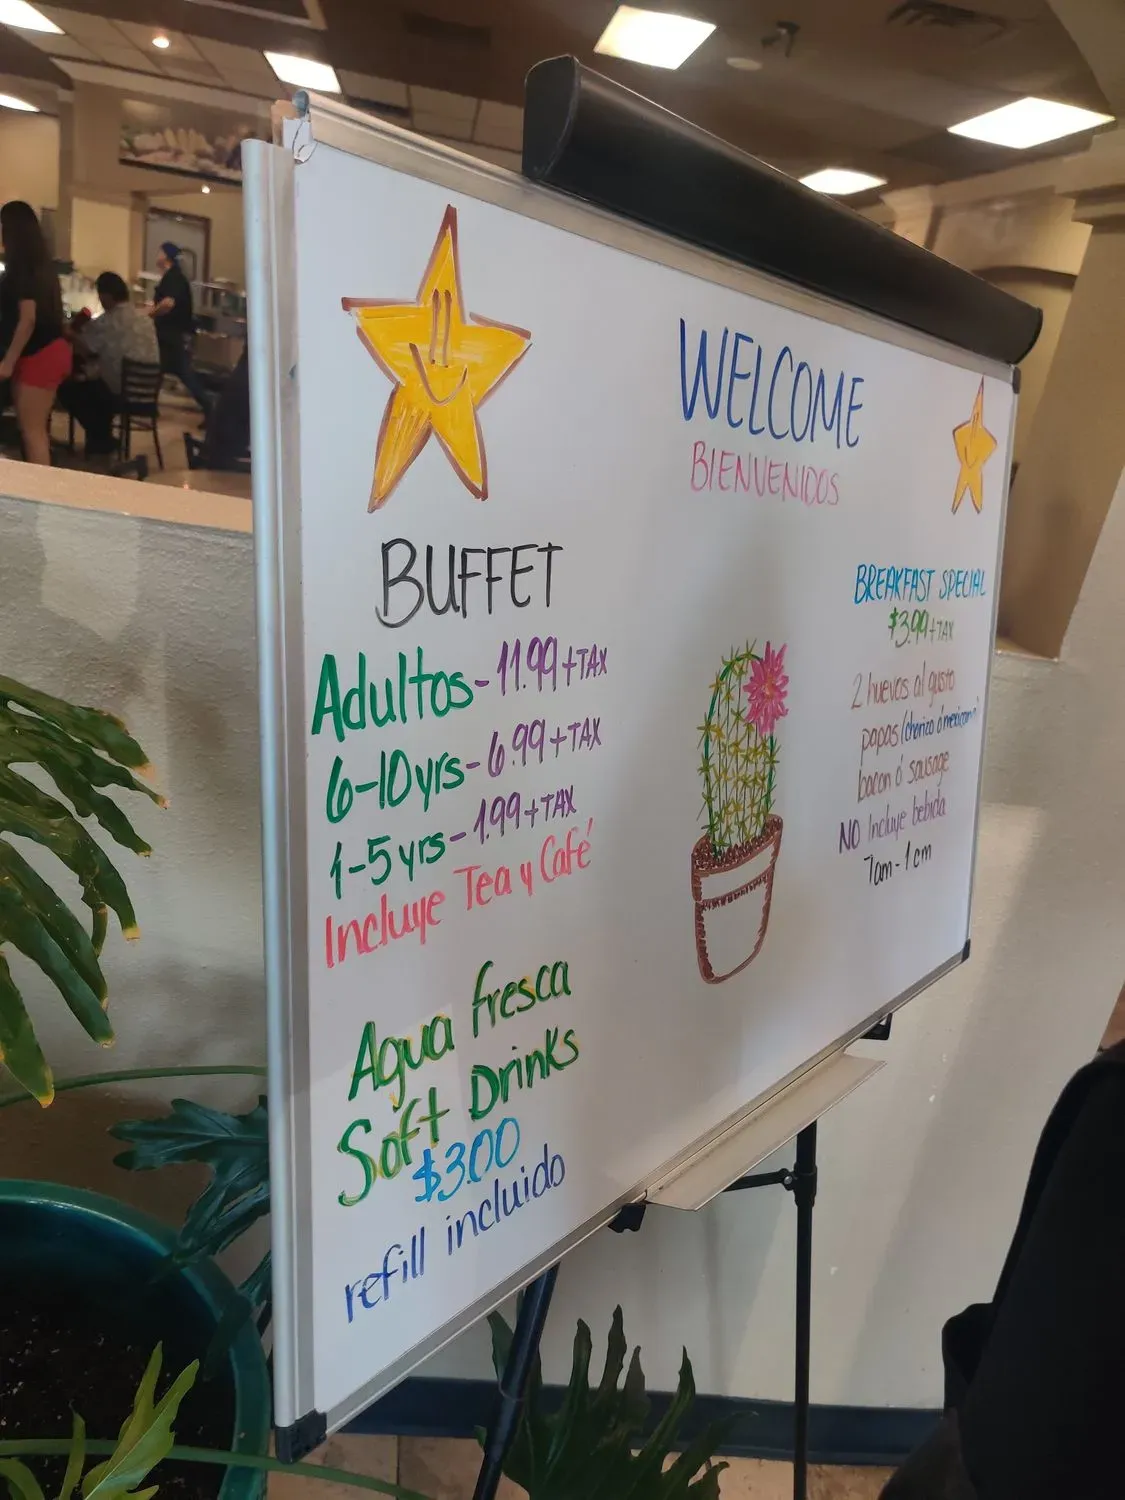 WELCOME
BIENVENIDOS
BUFFET
Adultos - 11.99 + TAX
6-10 yrs - 6.99 + TAX
1-5 yrs - 1.99 + TAX
Incluye Tea y Café
Agua fresca
Soft Drinks
$3.00
refill incluido
BREAKFAST SPECIAL
$3.99 + TAX
2 huevos al gusto
papas (chorizo ó mexicana)
bacon ó sausage
NO Incluye bebida
7am - 1